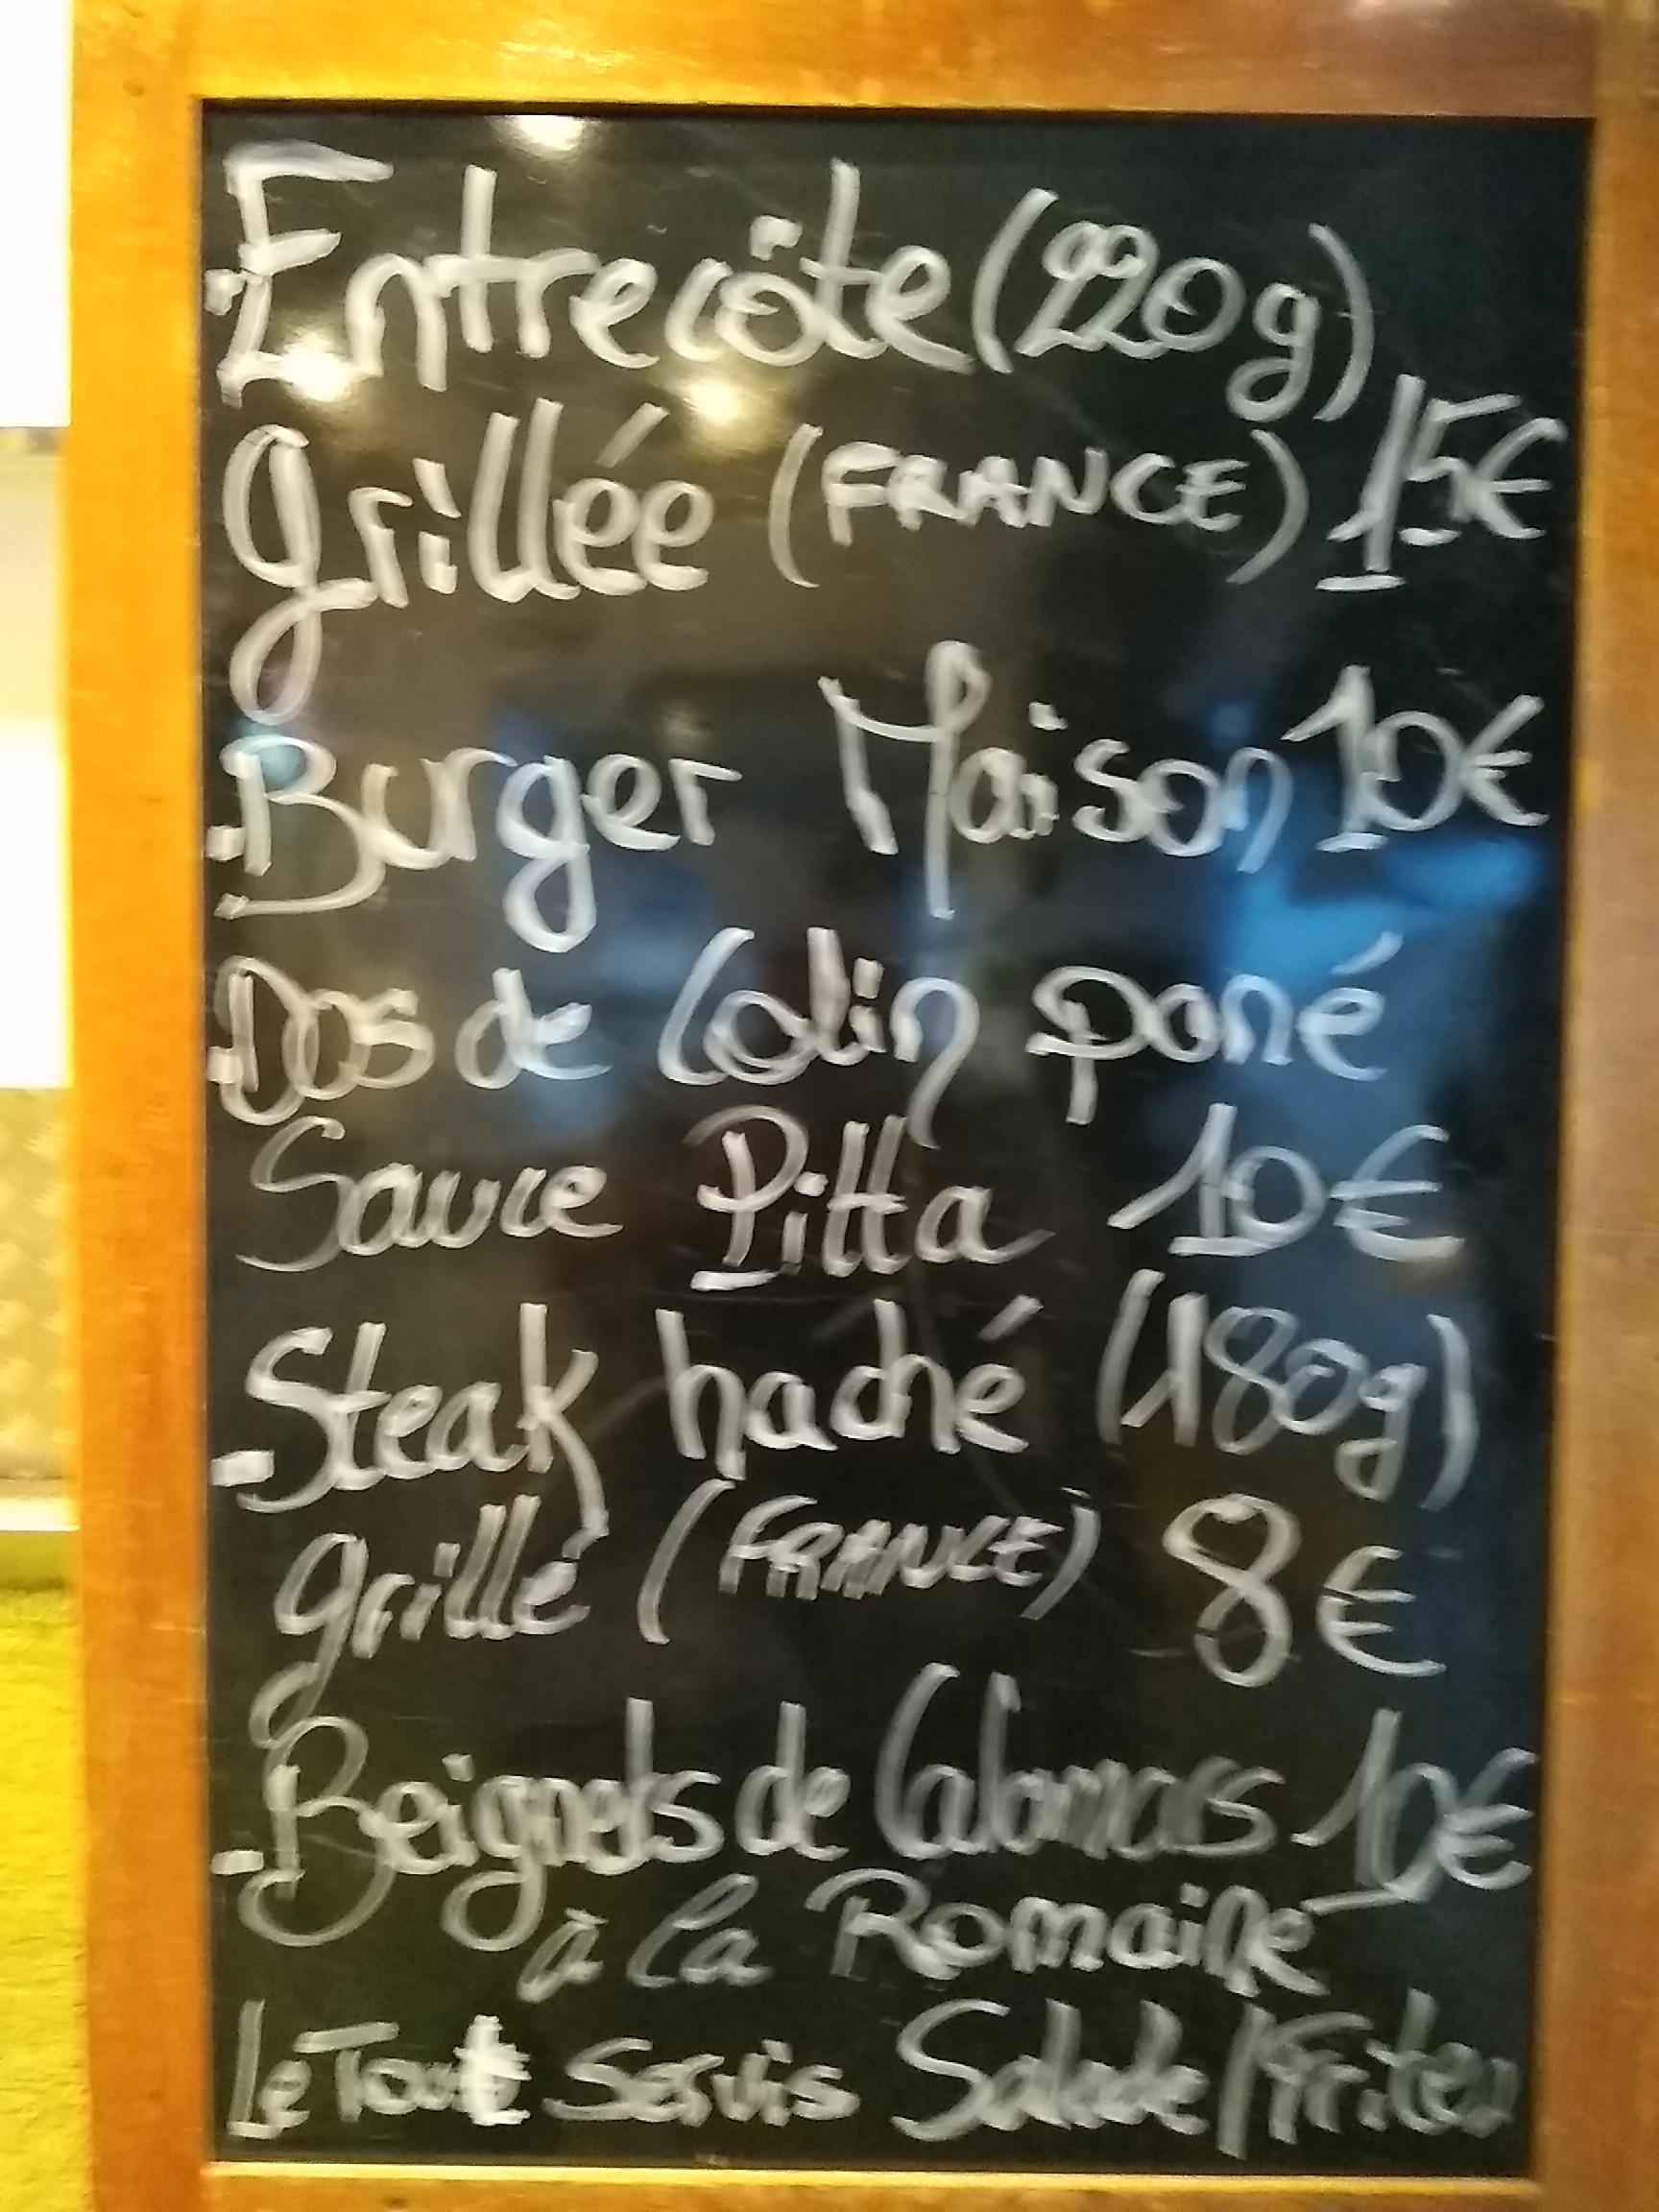 - Entrecôte (220g)
Grillée (FRANCE) 15€
- Burger Maison 10€
- Dos de Colin pané
Sauce Pitta 10€
- Steak haché (180g)
grillé (FRANCE) 8€
- Beignets de Calamars 10€
à la Romaine
Le Tout Servis Salade/Frites